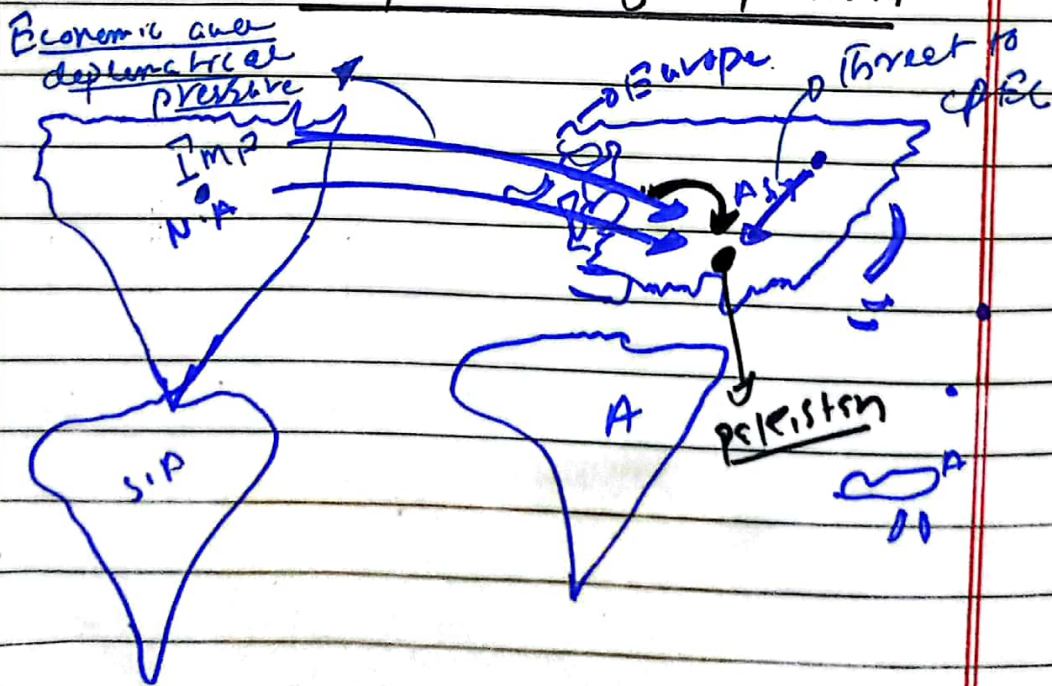 Economic and
deplomatical
pressure
Europe
Threet to
CPEC
IMF
N.A
Asia
S.A
A
pakistan
A